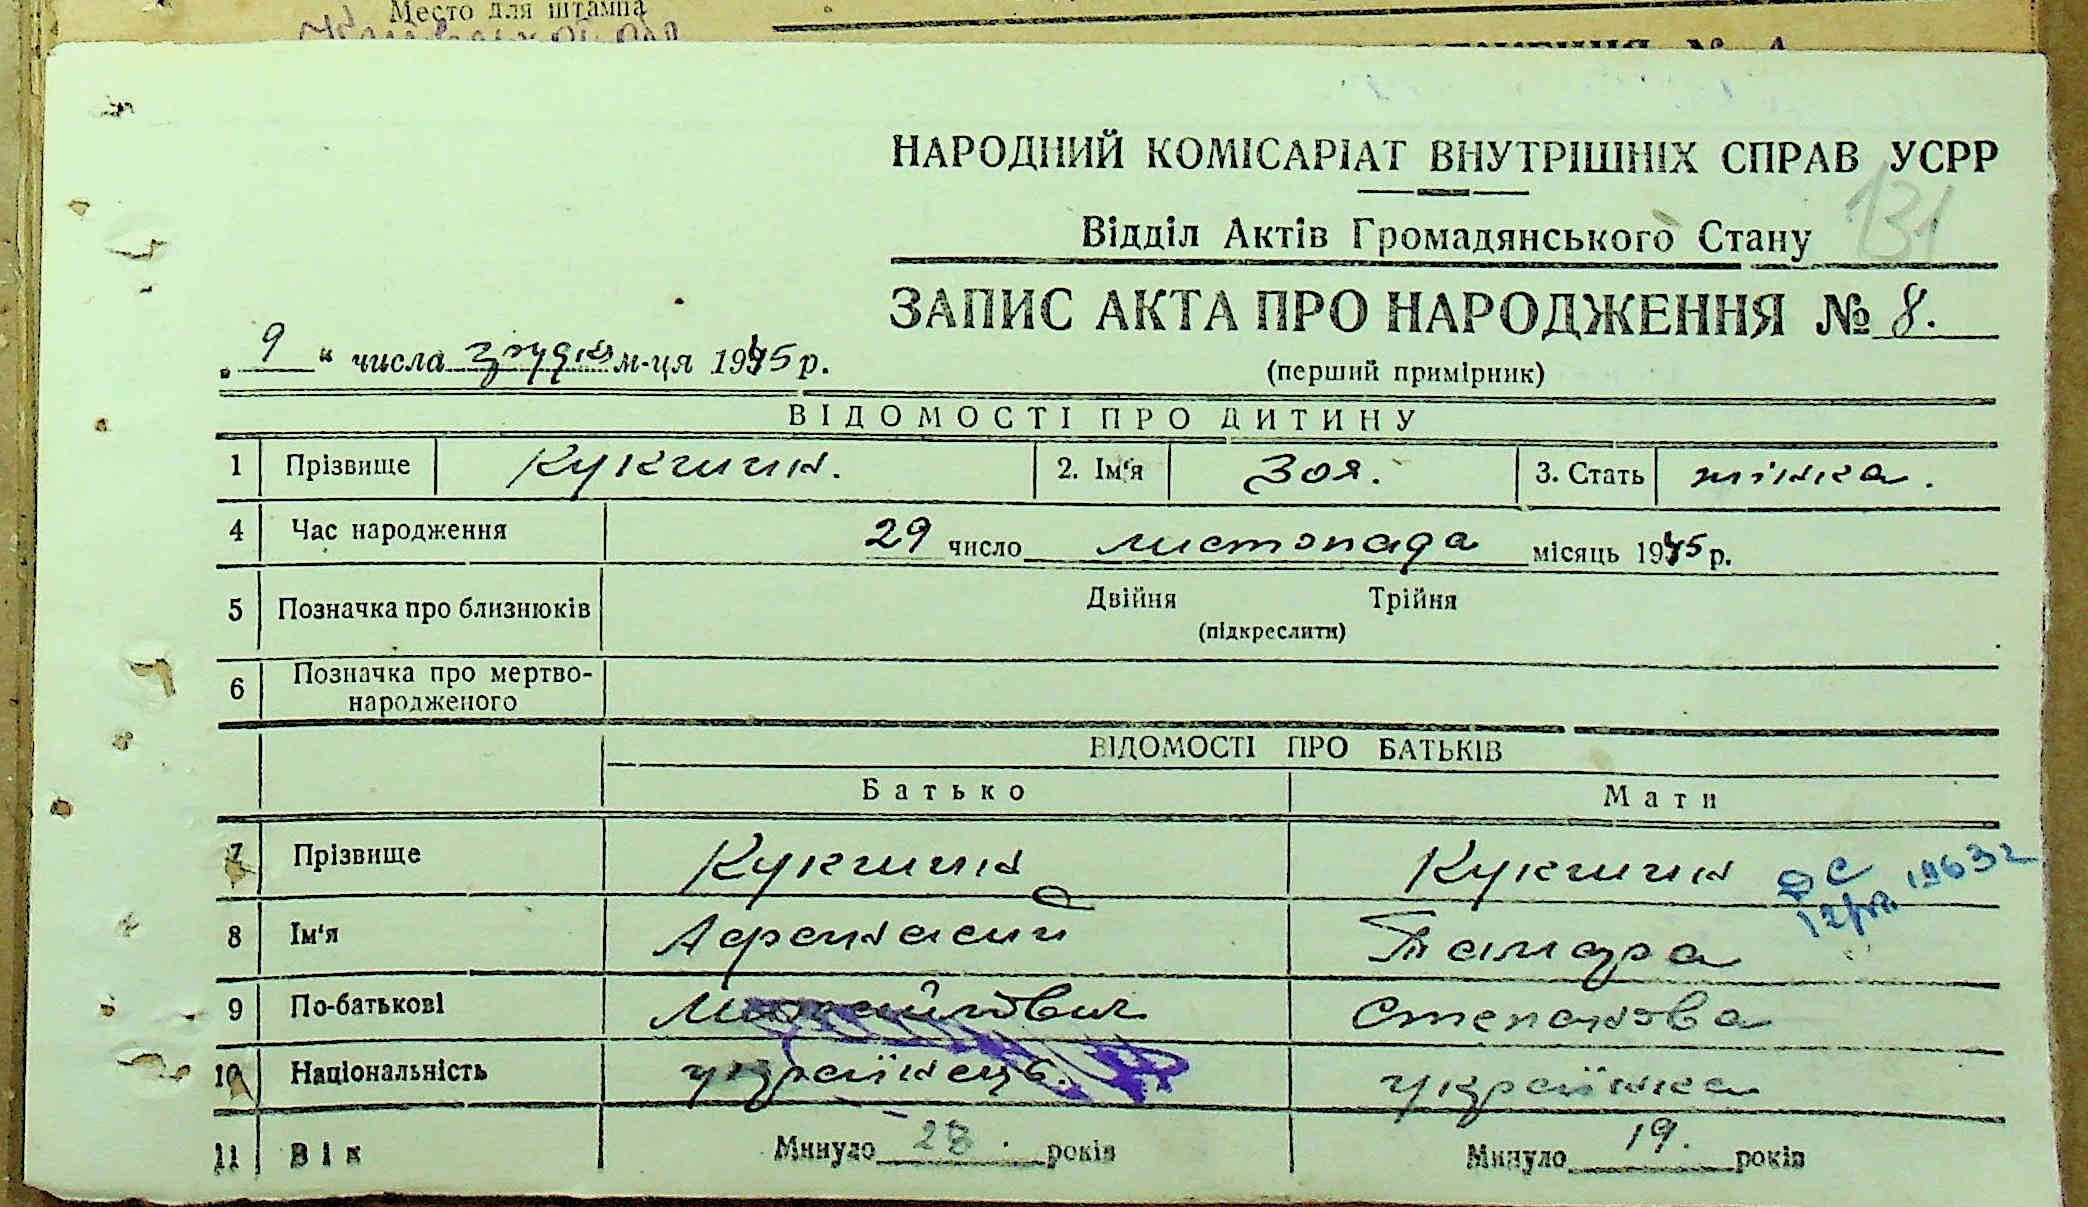 Место для штампа
НАРОДНИЙ КОМІСАРІАТ ВНУТРІШНІХ СПРАВ УСРР
131
Відділ Актів Громадянського Стану
ЗАПИС АКТА ПРО НАРОДЖЕННЯ № 8.
„ 9 “ числа грудня м-ця 1945 р.
(перший примірник)
ВІДОМОСТІ ПРО ДИТИНУ
1 Прізвище Кукшин. 2. Ім‘я Зоя. 3. Стать жінка.
4 Час народження 29 число листопада місяць 1945 р.
5 Позначка про близнюків Двійня Трійня
(підкреслити)
6 Позначка про мертво-
народженого
ВІДОМОСТІ ПРО БАТЬКІВ
Батько Мати
7 Прізвище Кукшин Кукшин
8 Ім‘я Афанасий Тамара
9 По-батькові Степанова
10 Національність українець. українка
11 Вік Минуло 28. років Минуло 19. років